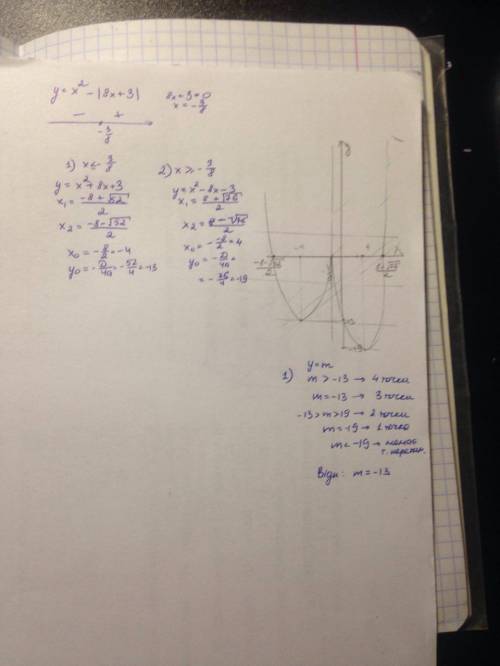 y = x² - |8x+3|
8x+3=0
x = -3/8
- +
-3/8
1) x ≤ -3/8
y = x² + 8x + 3
x₁ = (-8+√52)/2
x₂ = (-8-√52)/2
x₀ = -8/2 = -4
y₀ = -D/4a = -52/4 = -13
2) x ≥ -3/8
y = x² - 8x - 3
x₁ = (8+√76)/2
x₂ = (8-√76)/2
x₀ = - -8/2 = 4
y₀ = -D/4a =
= -76/4 = -19
y
-4
4
x
(8+√76)/2
-13
-19
y=m
1) m > -13 → 4 точки
m = -13 → 3 точки
-13 > m > 19 → 2 точки
m = -19 → 1 точка
m < -19 → немає
т. перетин.
Відп: m = -13